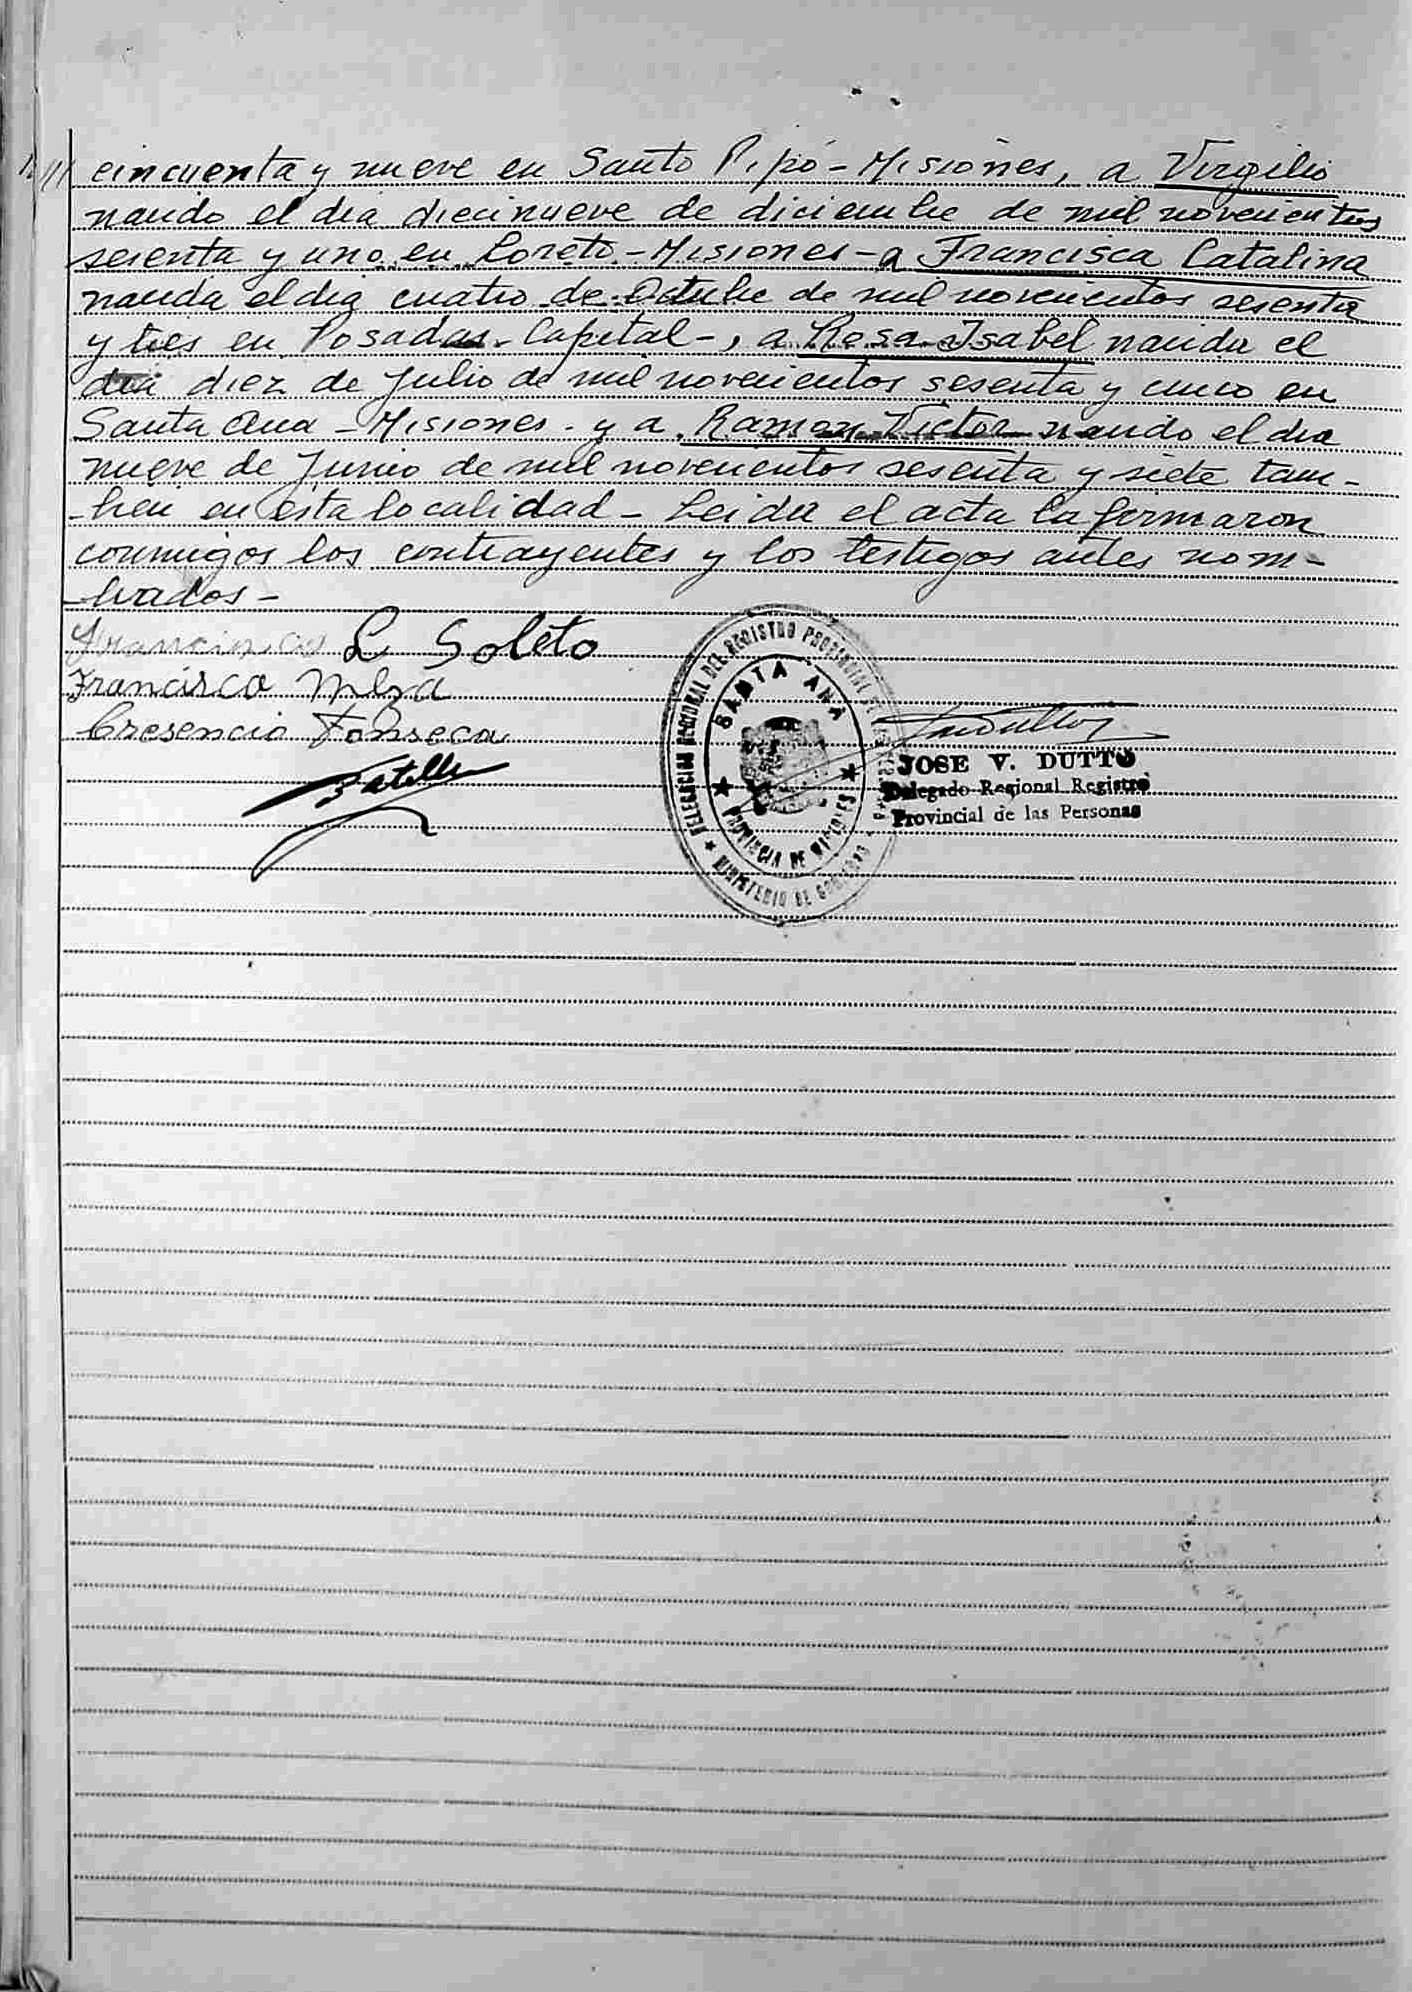 cincuenta y nueve en Santo Pipó - Misiones, a Virgilio
nacido el dia diecinueve de diciembre de mil novecientos
sesenta y uno en Loreto - Misiones - a Francisca Catalina
nacida el dia cuatro de Octubre de mil novecientos sesenta
y tres en Posadas - Capital -, a Rosa Isabel nacida el
dia diez de Julio de mil novecientos sesenta y cinco en
Santa Ana - Misiones - y a Ramon Victor nacido el dia
nueve de Junio de mil novecientos sesenta y siete tam-
-bien en esta localidad - Leida el acta la firmaron
conmigos los contrayentes y los testigos antes nom-
-brados -
L Soleto
Francisca Meza
Cresencio Fonseca
DELEGACION REGIONAL DEL REGISTRO PROVINCIAL DE LAS PERSONAS
SANTA ANA
PROVINCIA DE MISIONES
MINISTERIO DE GOBIERNO
JOSE V. DUTTO
Delegado Regional Registro
Provincial de las Personas